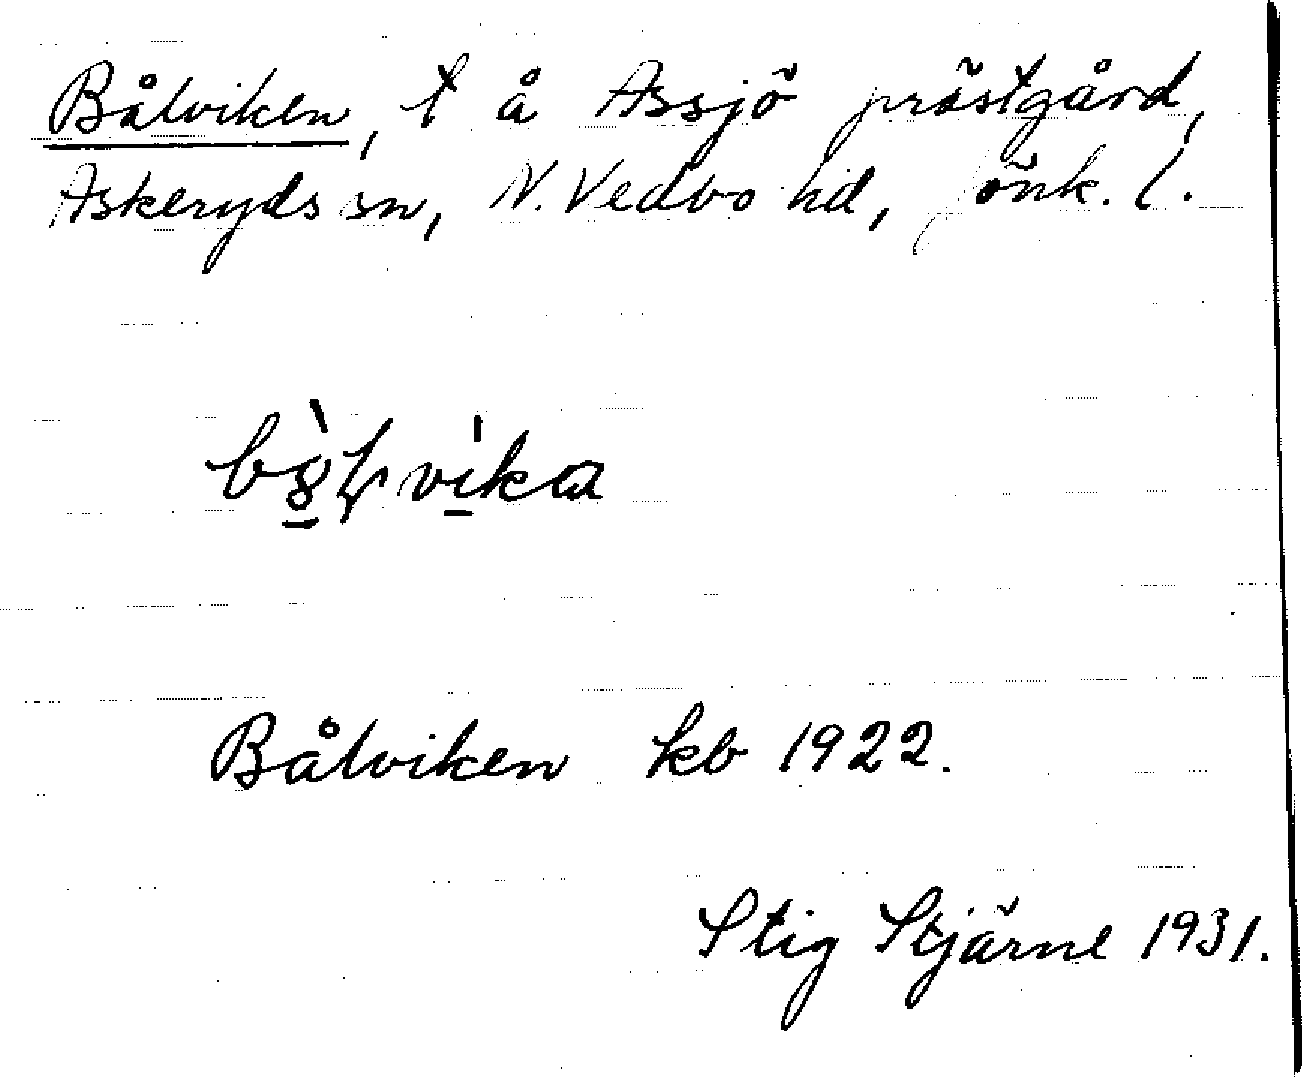 Bålviken, t å Assjö prästgård,
Askeryds sn, N. Vedbo hd, Jönk. l.
Bålviken kb 1922.
Stig Stjärne 1931.